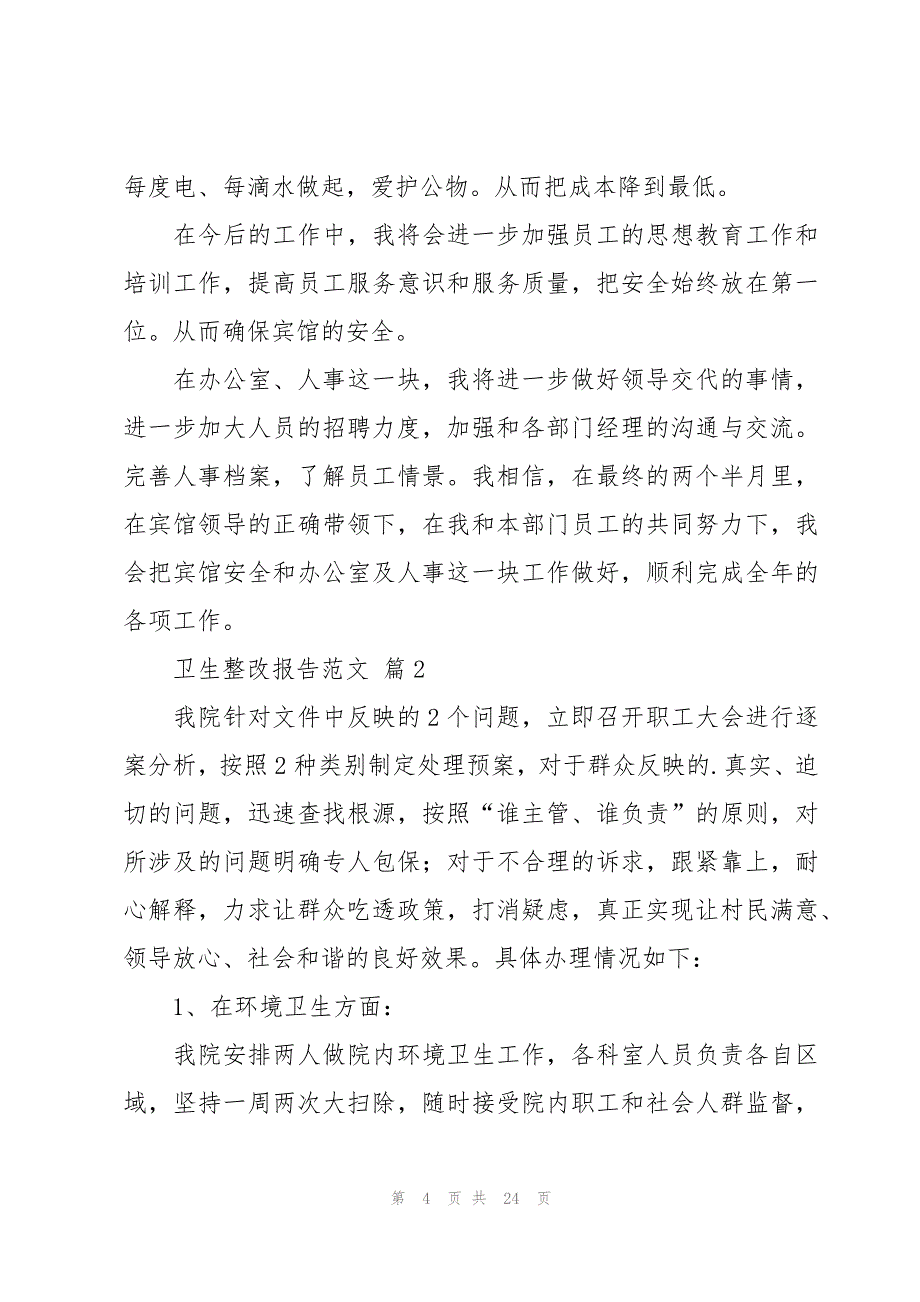 每度电、每滴水做起，爱护公物。从而把成本降到最低。
在今后的工作中，我将会进一步加强员工的思想教育工作和
培训工作，提高员工服务意识和服务质量，把安全始终放在第一
位。从而确保宾馆的安全。
在办公室、人事这一块，我将进一步做好领导交代的事情，
进一步加大人员的招聘力度，加强和各部门经理的沟通与交流。
完善人事档案，了解员工情景。我相信，在最终的两个半月里，
在宾馆领导的正确带领下，在我和本部门员工的共同努力下，我
会把宾馆安全和办公室及人事这一块工作做好，顺利完成全年的
各项工作。
卫生整改报告范文 篇2
我院针对文件中反映的2个问题，立即召开职工大会进行逐
案分析，按照2种类别制定处理预案，对于群众反映的.真实、迫
切的问题，迅速查找根源，按照“谁主管、谁负责”的原则，对
所涉及的问题明确专人包保；对于不合理的诉求，跟紧靠上，耐
心解释，力求让群众吃透政策，打消疑虑，真正实现让村民满意、
领导放心、社会和谐的良好效果。具体办理情况如下：
1、在环境卫生方面：
我院安排两人做院内环境卫生工作，各科室人员负责各自区
域，坚持一周两次大扫除，随时接受院内职工和社会人群监督，
第 4 页 共 24 页